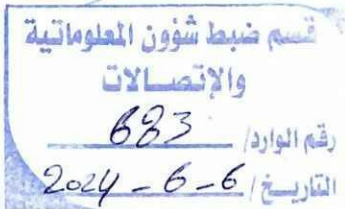 قسم ضبط شؤون المعلوماتية
والإتصالات
رقم الوارد/ 683
التاريخ/ 2024-6-6